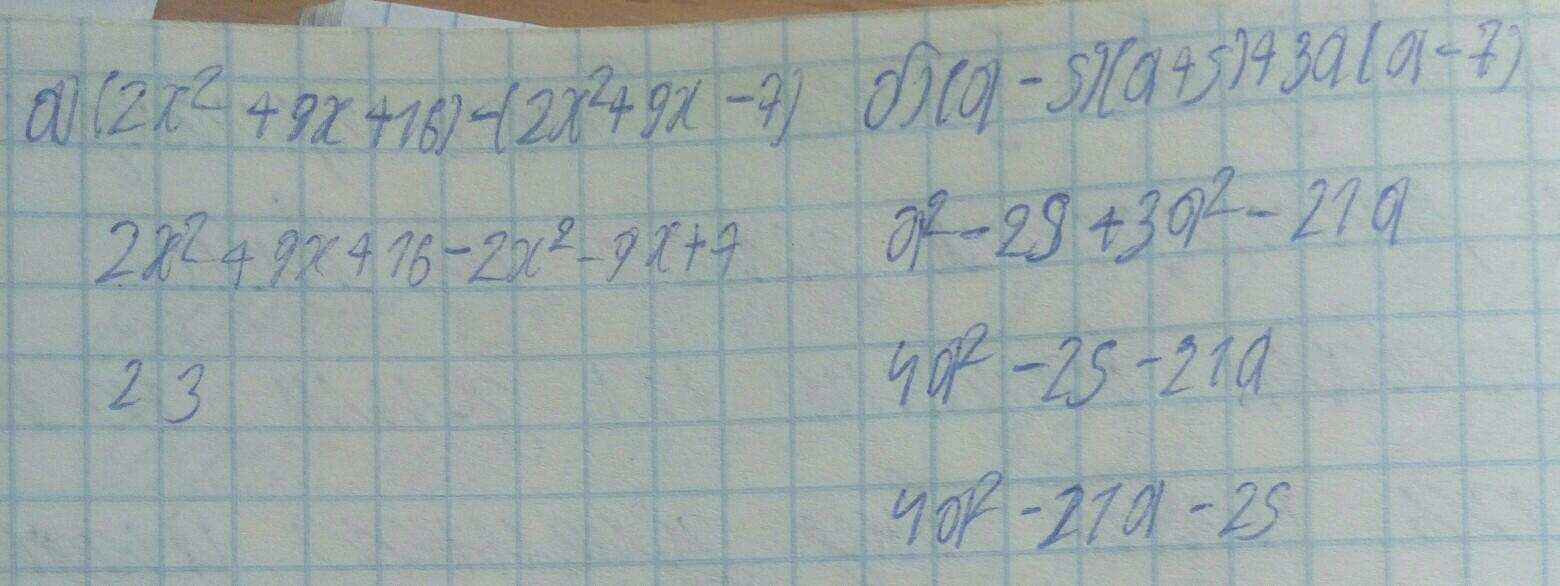 а) (2x² + 9x + 16) - (2x² + 9x - 7)
2x² + 9x + 16 - 2x² - 9x + 7
23
б) (a - 5)(a + 5) + 3a(a - 7)
a² - 25 + 3a² - 21a
4a² - 25 - 21a
4a² - 21a - 25